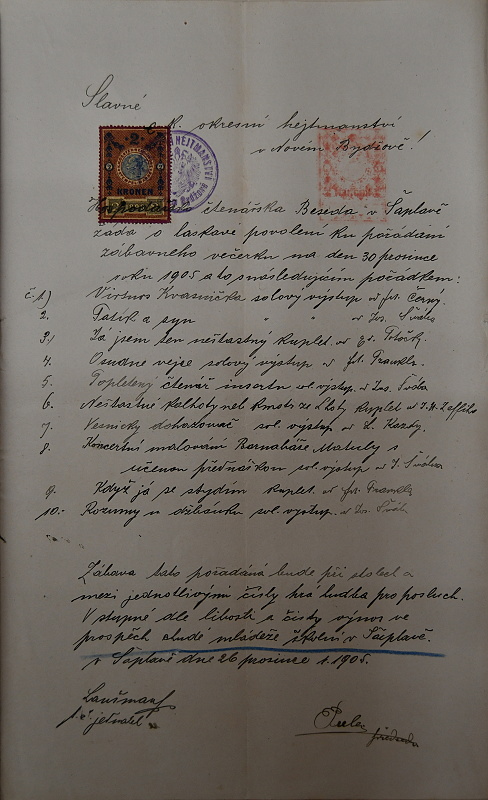 Slavné
c. k. okresní hejtmanství
v Novém Bydžově!
2
KRONEN
HEJTMANSTVÍ
čtenářska Beseda v Šaplavě
žada o laskavé povolení ku pořádání
zábavného večerku na den 30 prosince
roku 1905 a to s následujícím pořádkem:
č. 1.) Virtuos Kvasnička solový výstup
2. Tatík a syn " "
3.) Já jsem ten nešťastný kuplet.
4. Osudne vejce solový výstup Frankl
5. Popletený čtenář insertu sol. výstup.
6. Neštastné kalhoty neb kmotr ze Lhoty kuplet
7. Vesnický dohazovač sol. výstup
8. Koncertní malování Barnabáše Matuly s
učenou přednáškou sol. výstup
9. Když já se stydím kuplet. Frankl
10.- Rozumy u džbánku sol. výstup.
Zábava tato pořádaná bude při stolech a
mezi jednotlivými čísly hrá hudba pro poslech.
Vstupné dle libosti a čistý výnos ve
prospěch chudé mládeže školní v Šaplavě.
v Šaplavě dne 26 prosince 1905.
Laušman
jednatel
předseda